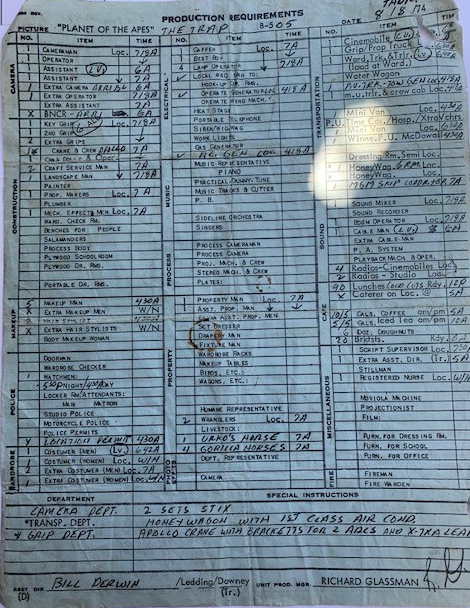 PRODUCTION REQUIREMENTS
PICTURE "PLANET OF THE APES" THE TRAP B-505 DATE 8/8/74
NO. ITEM TIME
NO. ITEM TIME
NO. ITEM TIME
CAMERA
1 CAMERAMAN Loc. 718A
1 OPERATOR
1 ASSISTANT (LV)
1 ASSISTANT 7A
1 EXTRA CAMERA 6A
1 EXTRA OPERATOR 718A
1 EXTRA ASSISTANT 7A
X BNCR 6A
1 KEY GRIP Loc. 718A
1 2ND GRIP
2 EXTRA GRIPS
1 CRANE & CREW 7A
2 CRAFT SERVICE MAN 7A
1 LANDSCAPE MAN 718A
CONSTRUCTION
PAINTER
1 PROP. MAKERS Loc. 7A
PLUMBER
1 MECH. EFFECTS MEN Loc. 7A
WARD. CHECK RM.
BENCHES FOR PEOPLE
SALAMANDERS
PROCESS BODY
PLYWOOD SCHOOLROOM
PLYWOOD DR. RMS.
PORTABLE DR. RMS.
MAKEUP
5 MAKEUP MAN 430A
X EXTRA MAKEUP MEN W/N
2 HAIR STYLIST 430A
X EXTRA HAIR STYLISTS W/N
BODY MAKEUP WOMAN
POLICE
DOORMAN
WARDROBE CHECKER
1 WATCHMEN:
LOCKER RM. ATTENDANTS:
MAN MATRON
STUDIO POLICE
MOTORCYCLE POLICE
POLICE PERMITS
X LOCATION PERMIT 430A
WARDROBE
1 COSTUMER (MEN) (LV.) 642A
1 COSTUMER (WOMEN) Loc. W/N
2 EXTRA COSTUMER (MEN) Loc. 7A
1 EXTRA COSTUMER (WOMEN) Loc. W/N
ELECTRICAL
1 GAFFER Loc. 7A
1 BEST BOY
4 LAMP OPERATOR 718A
✓ LOCAL #40 MAN. TO:
HOOK-UP OR TEL.
✓ OPERATE GENERATOR Loc 418A
OPERATE WIND MACH.
HEAT STAGE
PORTABLE TELEPHONE
SIREN/WIGWAG
WORK LIGHTS
GAS GENERATOR
✓ GEN. Loc. 418A
MUSIC
MUSIC REPRESENTATIVE
PIANO
PRACTICAL DUMMY-TUNE
MUSIC TRACKS & CUTTER
P. B.
SIDELINE ORCHESTRA
SINGERS
PROCESS
PROCESS CAMERAMAN
PROCESS CAMERA
PROJ. MACH. & CREW
STEREO MACH. & CREW
PLATES:
PROPERTY
1 PROPERTY MAN Loc 7A
1 ASST. PROP. MAN
EXTRA ASST. PROP. MEN
SET DRESSER
DRAPERY MAN
FIXTURE MAN
WARDROBE RACKS
MAKEUP TABLES
BIRDS, ETC.:
WAGONS, ETC.:
HUMANE REPRESENTATIVE
2 WRANGLERS Loc. 7A
LIVESTOCK:
1 URKO'S HORSE 7A
4 GORILLA HORSES 7A
DEPT. REPRESENTATIVE
CAMERA
TRANSPORTATION
1 Cinemobile (LV.)
1 Grip/Prop Truck
1 Word, Trk. & Trlr. (LV.)
(Load at Ward)
Water Wagon
m.u. trlr. & crew cab Loc.
Mini Van Loc.
P.U. Time Cds./Hosp./XtraVchrs
Mini Van Loc.
Winneb. P.U. McDowall
Dressing Rm. Semi Loc.
HoneyWag. 6 RM. Loc.
HoneyWag. Loc.
SOUND
1 SOUND MIXER Loc 718A
SOUND RECORDER
1 BOOM OPERATOR Loc 718A
1 CABLE MAN (LV.) 6A
EXTRA CABLE MAN
P. A. SYSTEM
PLAYBACK MACH. & OPER.
4 Radios-Cinemobiles Loc
X Radios - Studio Loc
CAFE
90 Lunches Rdy. 12P
X Caterer on Loc. @ 5A
10/5 GALS. COFFEE am/pm 5A
5/5 Gals. Iced Tea am/pm
6 DOZ. DOUGHNUTS
20 Brkfsts. Rdy.
MISCELLANEOUS
1 SCRIPT SUPERVISOR Loc
1 EXTRA ASST. DIR. (Tr.) 5A
STILLMAN
1 REGISTERED NURSE Loc W/N
MOVIOLA MACHINE
PROJECTIONIST
FILM:
FURN. FOR DRESSING RM.
FURN. FOR SCHOOL
FURN. FOR OFFICE
FIRE
FIREMAN
FIRE WARDEN
DEPARTMENT SPECIAL INSTRUCTIONS
CAMERA DEPT. 2 SETS STIX
*TRANSP. DEPT. HONEYWAGON WITH 1ST CLASS AIR COND.
* GRIP DEPT. APOLLO CRANE WITH BRACKETTS FOR 2 ARCS AND X-TRA LEAD
ASST. DIR BILL DERWIN /Ledding/Downey UNIT PROD. MGR. RICHARD GLASSMAN
(D) (Tr.)